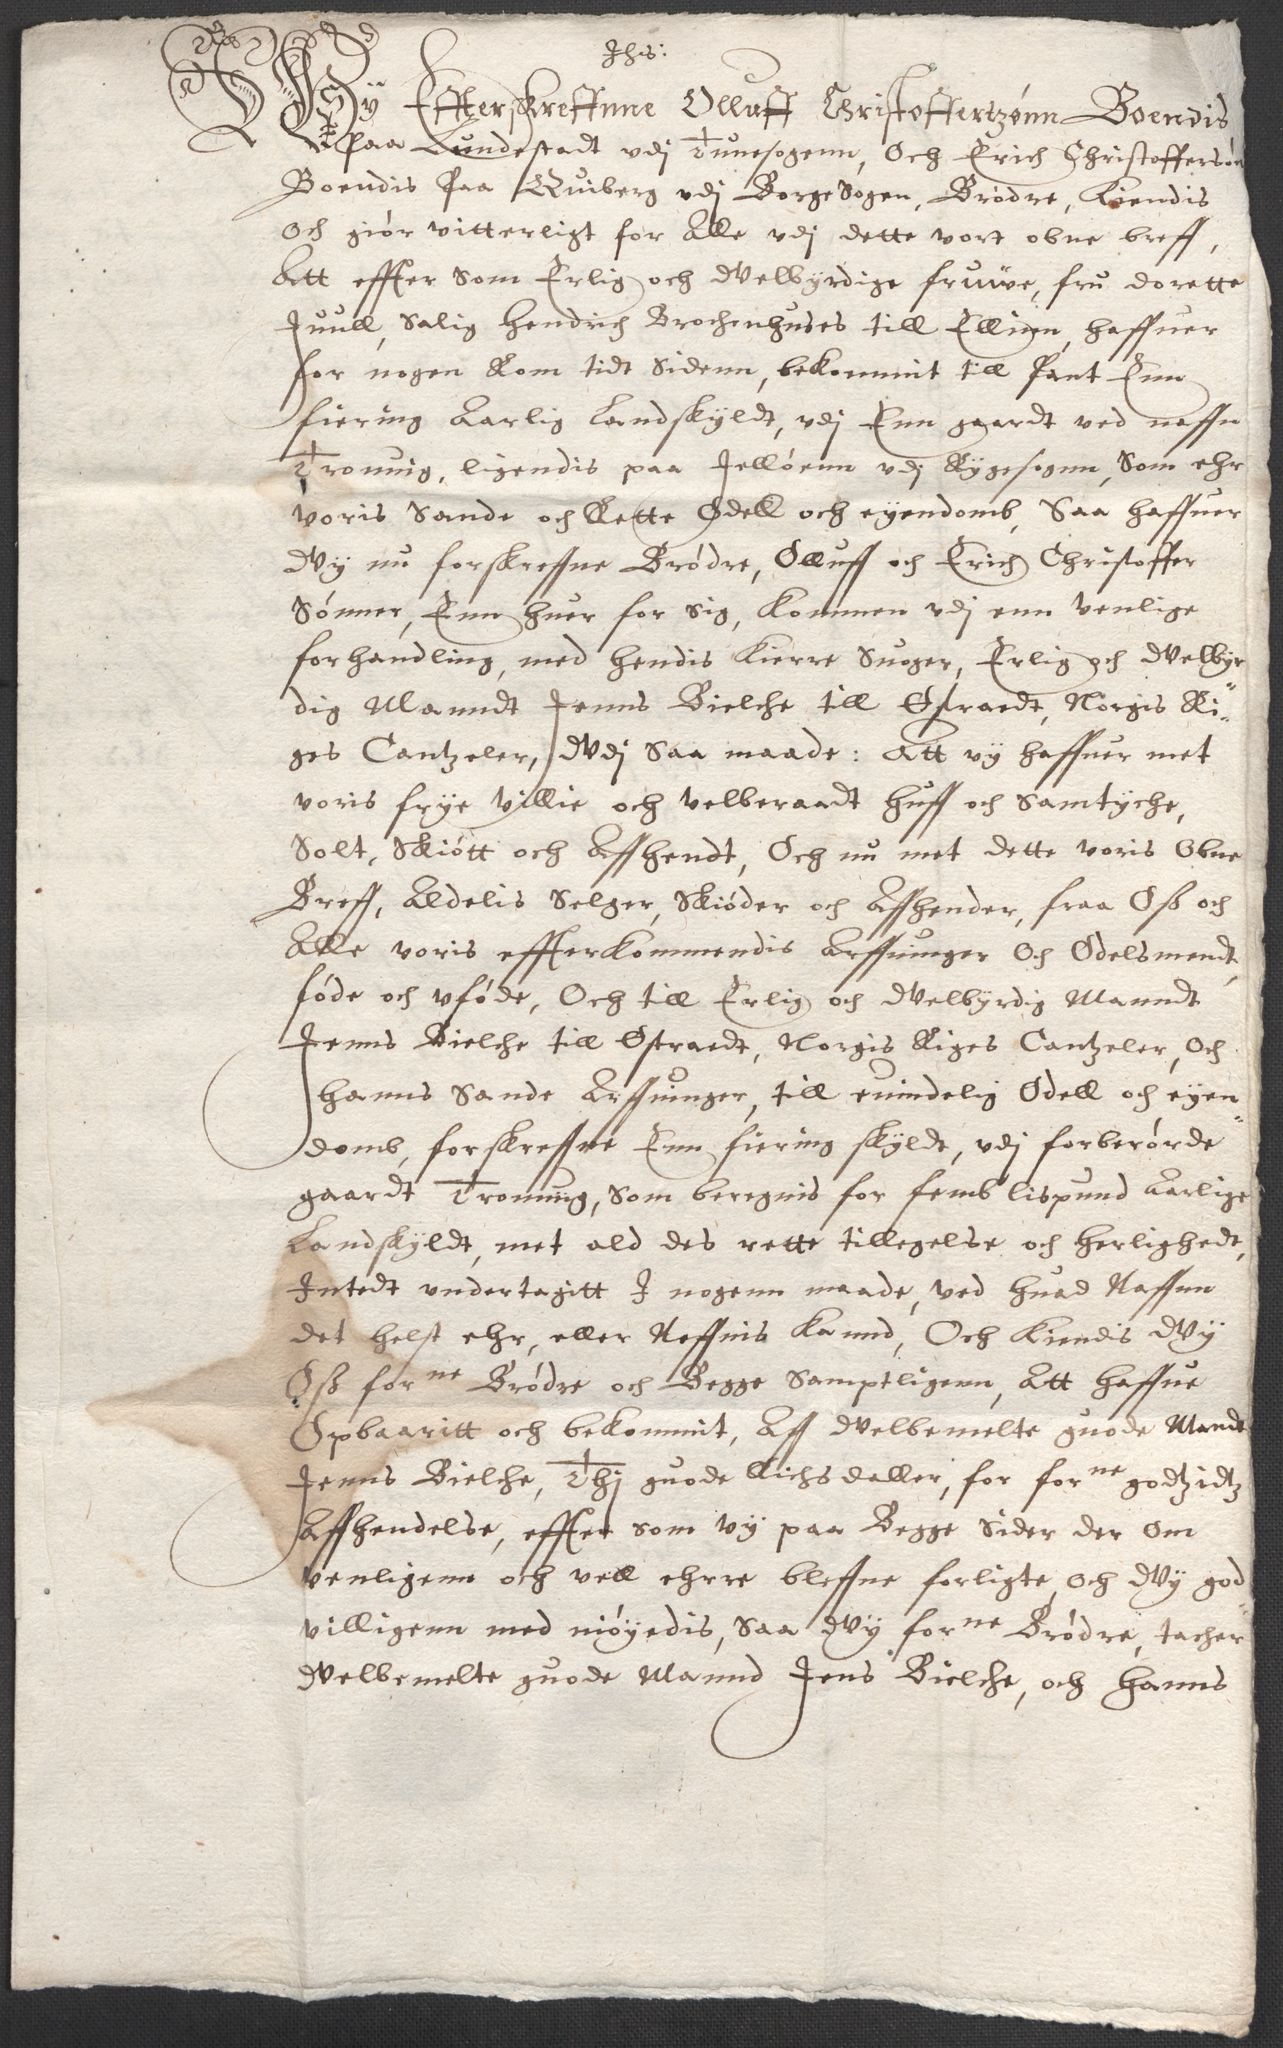 Jhs:
Wÿ Effterskreffnne Olluff Christoffertzønn Boendis
Paa Lundestadt vdj Tunesogenn, Och Erich Christoffersøn
Boendis Paa Quiberg vdj Borge Sogen, Brødre, Kiendis
och giør vitterligt for Alle vdj dette vort obne breff,
Att effter som Erlig och Welbÿrdige fruwe, fru dorette
Juull, Salig Hendrich Brochenhuses till Ellinn, haffuer
for nogen Rom tidt Sidenn, bekommit till Pant Enn
fiering Aarlig Landskÿldt, vdj Enn gaardt ved naffn
Tronuig, ligendis paa Jelløenn vdj Rÿgesogenn, Som ehr
voris Sande och Rette Odell och eÿendomb, Saa haffuer
Wÿ nu forskreffne Brødre, Olluff och Erich Christoffer
Sønner, Enn huer for Sig, Kommen vdj enn venlige
forhandling, med hendis Kierre Suoger, Erlig och Welbÿr
dig Manndt Jenns Bielche till Østraedt, Norgis Ri-
ges Cantzeler, Wdj Saa maade: Att vÿ haffuer met
voris frÿe villie och velberaadt Huff och Samtÿche,
Solt, Skiøtt och Affhendt, Och nu met dette voris Obne
Breff, Aldelis Selger, Skiøder och Affhender, fraa Oß och
Alle voris effterkommendis Arffuinger Och Odelsmendt,
føde och vføde, Och till Erlig och Welbÿrdig Manndt
Jenns Bielche till Østraedt, Norgis Riges Cantzeler, Och
hanns Sande Arffuinger, till euindelig Odell och eÿen-
domb, forskreffne Enn fiering skÿldt, vdj forberørde
gaardt Tronuug, Som beregnis for femb lispund Aarlige
Landskÿldt, met ald des rette tillegelse och herlighedt,
Intedt vndertagitt J nogenn maade, ved huad Naffnn
det helst ehr, eller Neffnis Kannd, Och Kiendis Wÿ
Oß forne Brødre och Begge Samptligenn, Att haffue
Opbaaritt och bekommit, Aff Welbemelte guode Mandt
Jenns Bielche, Thj guode Richs daller, for forne godtzidtz
Affhendelse, effter som vÿ paa Begge Sider der om
venligenn och vell ehrre bleffne forligte, och Wÿ god-
villigenn med nøÿedis, Saa Wÿ forne Brødre, tacher
Welbemelte guode Mannd Jens Bielche, och hanns